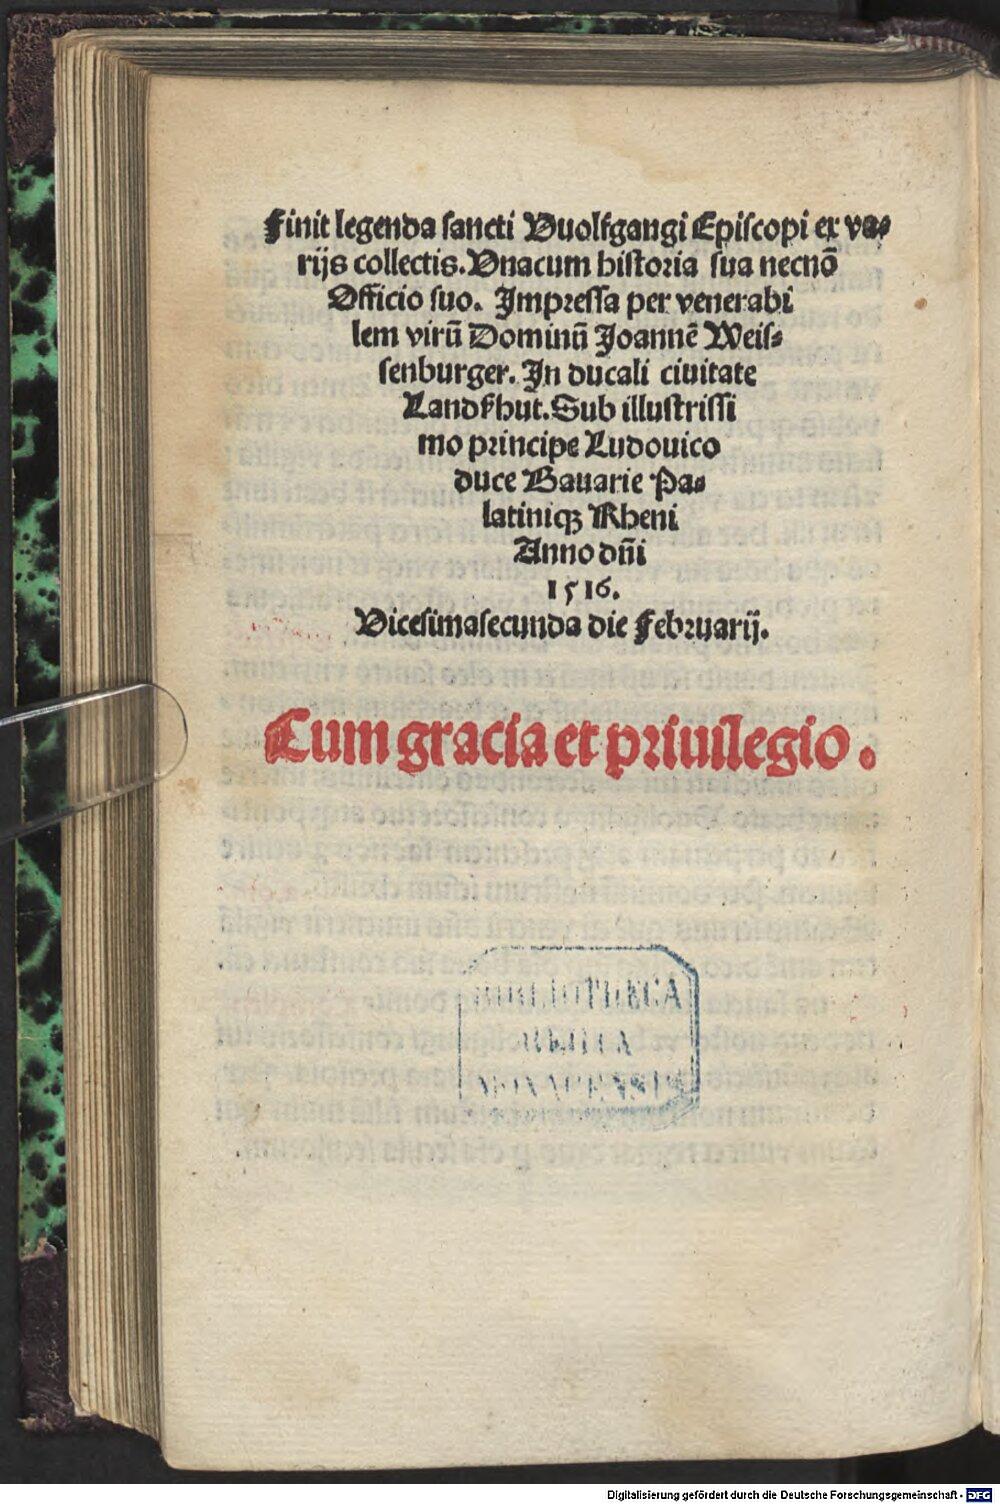 Finit legenda sancti Vuolfgangi Episcopi ex va⸗
rijs collectis. Vnacum historia sua necnō
Officio suo. Impressa per venerabi
lem virū Dominū Joannē Weis⸗
senburger. In ducali ciuitate
Landßhut. Sub illustrissi
mo principe Ludouico
duce Bauarie Pa⸗
latiniqꝫ Rheni
Anno dn̄i
1516.
Vicesimasecunda die Februarij.
Cum gracia et priuilegio.
BIBLIOTHECA
REGIA
MONACENSIS
Digitalisierung gefördert durch die Deutsche Forschungsgemeinschaft - DFG